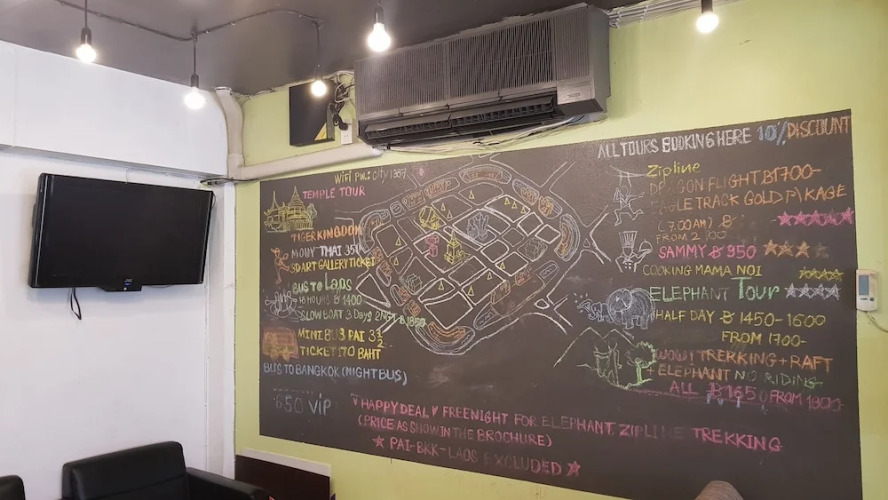 WiFi PW: City 1357
TEMPLE TOUR
TIGER KINGDOM
MOUY THAI 35
3D ART GALLERY TICKET
BUS TO Laos
HOURS ฿ 1400
SLOW BOAT 3 Day ฿ 1850
MINI BUS PAI 3 1/2
TICKET 170 BAHT
BUS TO BANGKOK (NIGHT BUS)
650 VIP
ALL TOURS BOOKING HERE 10% DISCOUNT
Zipline
DRAGON FLIGHT ฿1700-
EAGLE TRACK GOLD PAKAGE
(7.00AM) ฿
FROM
SAMMY ฿ 950
COOKING MAMA NOI
ELEPHANT Tour
HALF DAY ฿ 1450-1600
FROM 1700-
WOW! TREKKING + RAFT
+ ELEPHANT NO RIDING
ALL ฿1650 FROM 1800-
♥ HAPPY DEAL ♥ FREE NIGHT FOR ELEPHANT, ZIPLINE TREKKING
(PRICE AS SHOW IN THE BROCHURE)
★ PAI-BKK-LAOS EXCLUDED ★